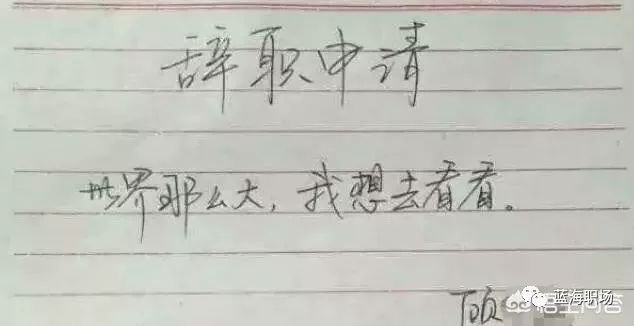 辞职申请
世界那么大，我想去看看。
顾
蓝海职场
悟空问答